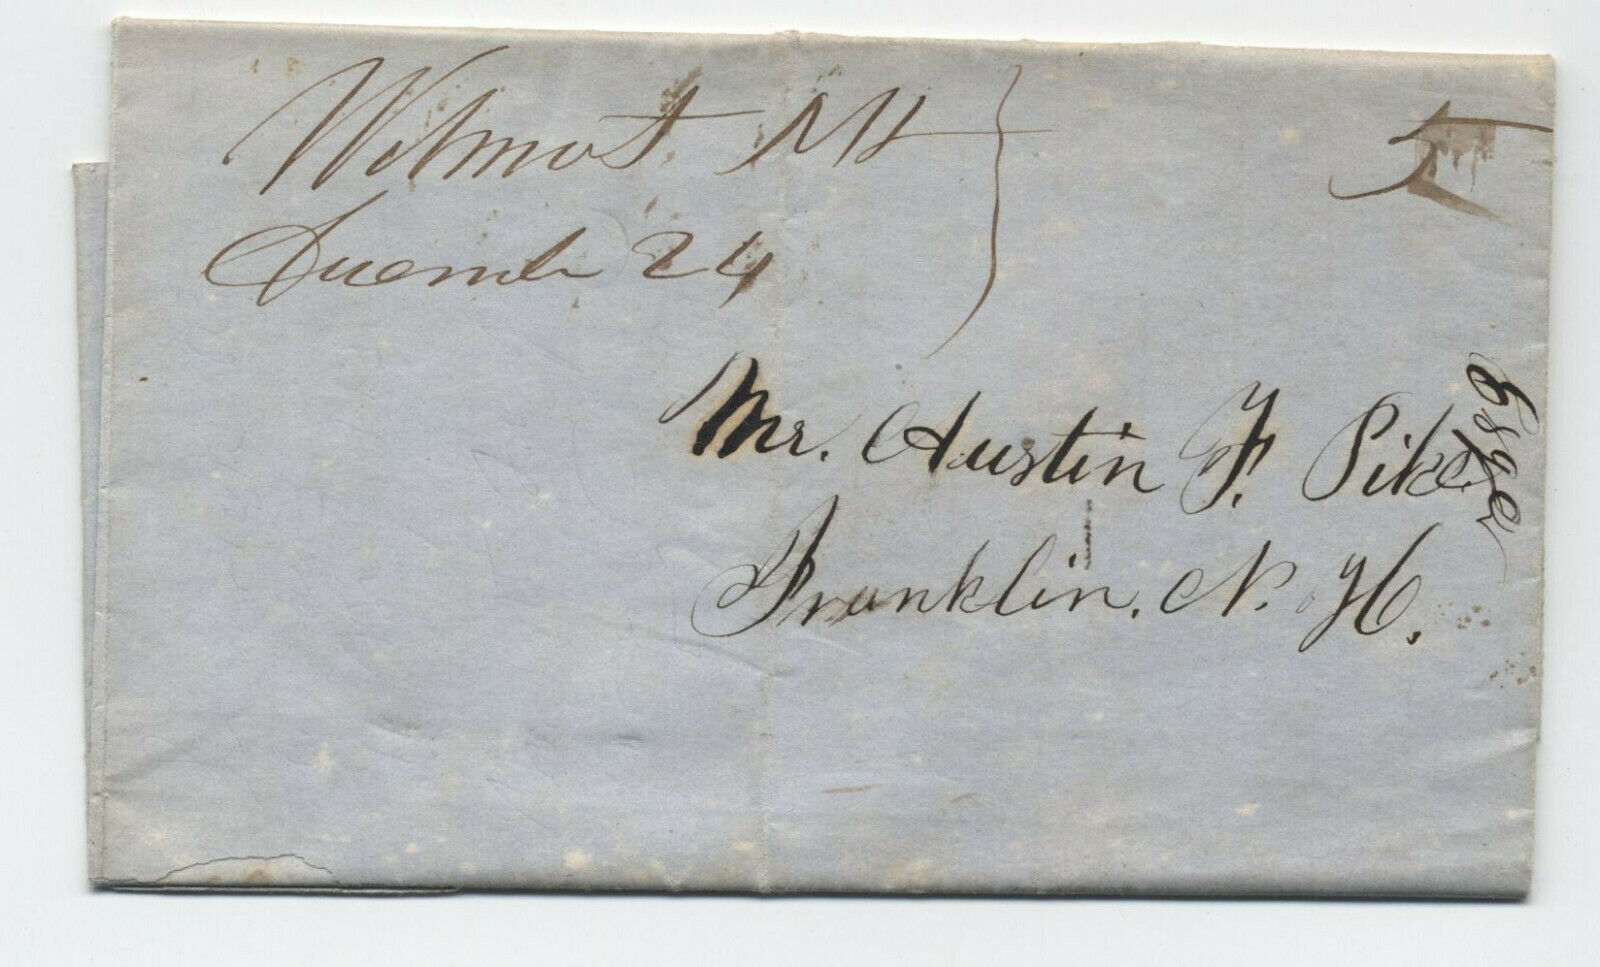 Wilmot NH
December 24
5
Mr. Austin F. Pike Esqr
Franklin, N. H.